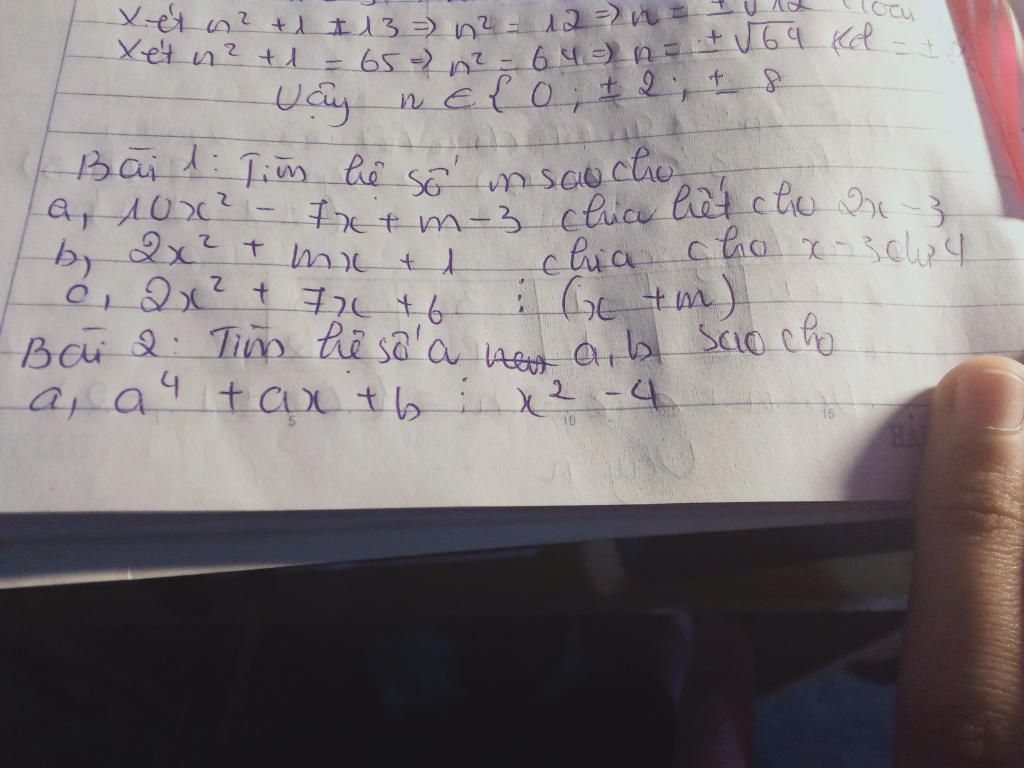 Xét n² + 1 = 13 => n² = 12 => n = ± √12 (loại
Xét n² + 1 = 65 => n² = 64 => n = ± √64 = ±
Vậy n ∈ { 0 ; ± 2 ; ± 8
Bài 1: Tìm hệ số m sao cho
a, 10x² - 7x + m - 3 chia hết cho 2x - 3
b, 2x² + mx + 1 chia cho x - 3 dư 4
c, 2x² + 7x + 6 ⋮ (x + m)
Bài 2: Tìm hệ số a a, b sao cho
a, a⁴ + ax + b ⋮ x² - 4
5 10 15